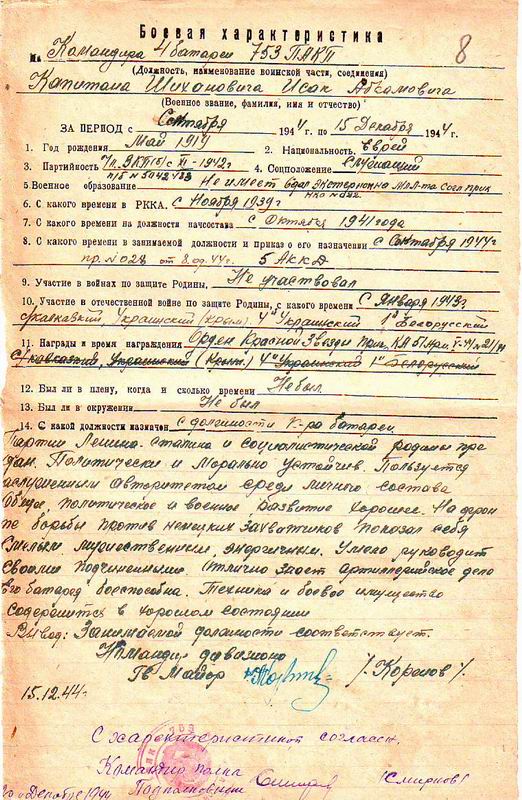 Боевая характеристика
8
На Командира 4 батареи 753 ПАКП
(Должность, наименование воинской части, соединения)
Капитана Шихановича Исак Абрамовича
(Военное звание, фамилия, имя и отчество)
ЗА ПЕРИОД с Сентября 1944 г. по 15 Декабря 1944 г.
1. Год рождения Май 1914 2. Национальность еврей
3. Партийность Чл. ВКП(б) с XI-1942 г 4. Соцположение служащий
п/б №
5. Военное образование Не имеет сдал экстерном
6. С какого времени в РККА. с Ноября 1939 г
7. С какого времени на должности начсостава с Октября 1941 года
8. С какого времени в занимаемой должности и приказ о его назначении с Сентября 1944 г.
пр. № 028 от 8.09.44 г. 5 АККД
9. Участие в войнах по защите Родины, Не участвовал
10. Участие в отечественной войне по защите Родины, с какого времени с Января 1943 г.
Украинский (Крым). 4й Украинский 1й Белорусский
11. Награды и время награждения Орден Красной Звезды
Украинский (Крым) 4й Украинский 1й Белорусский
12. Был ли в плену, когда и сколько времени Не был
13. Был ли в окружении Не был
14. С какой должности назначен с должности К-ра батареи
Партии Ленина-Сталина и социалистической родины пре
дан. Политически и Морально устойчив. Пользуется
заслуженным авторитетом среди личного состава
Общее политическое и военное развитие хорошее. На фрон
те борьбы против немецких захватчиков показал себя
смелым мужественным, энергичным. Умело руководит
своими подчиненными. Отлично знает артиллерийское дело
Его батарея боеспособна. Техника и боевое имущество
содержится в хорошем состоянии
Вывод: Занимаемой должности соответствует.
Командир дивизиона
Гв. Майор /Корепов/.
15.12.44 г
С характеристикой согласен.
Командир полка
Подполковник (Смирнов)
Декабря 1944